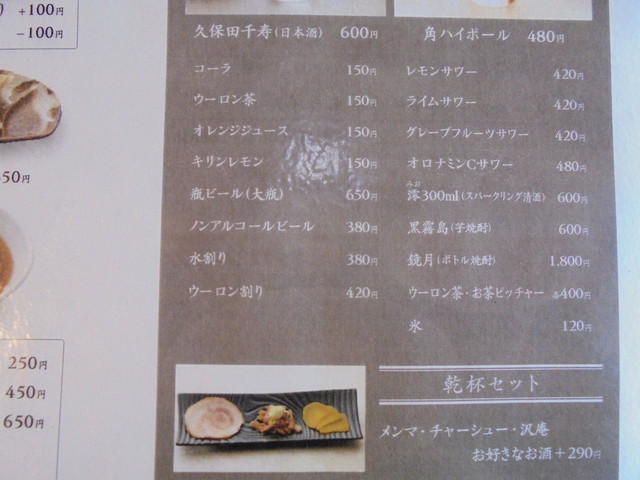 +100円
-100円
50円
250円
450円
650円
久保田千寿(日本酒) 600円
コーラ 150円
ウーロン茶 150円
オレンジジュース 150円
キリンレモン 150円
瓶ビール(大瓶) 650円
ノンアルコールビール 380円
水割り 380円
ウーロン割り 420円
角ハイボール 480円
レモンサワー 420円
ライムサワー 420円
グレープフルーツサワー 420円
オロナミンCサワー 480円
みお
澪300ml(スパークリング清酒) 600円
黒霧島(芋焼酎) 600円
鏡月(ボトル焼酎) 1,800円
ウーロン茶・お茶ピッチャー 各400円
氷 120円
乾杯セット
メンマ・チャーシュー・沢庵
お好きなお酒+290円